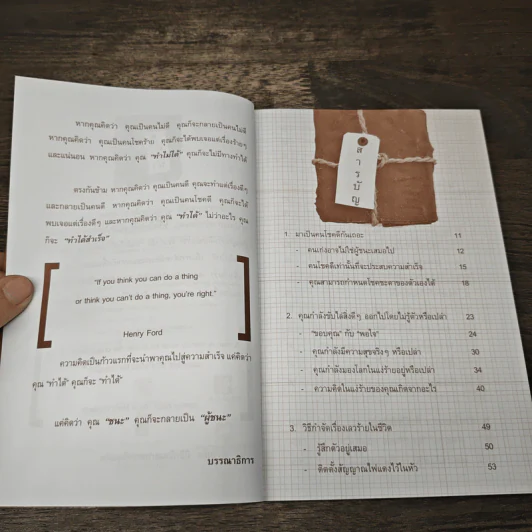 หากคุณคิดว่า คุณเป็นคนไม่ดี คุณก็จะกลายเป็นคนไม่ดี
หากคุณคิดว่า คุณเป็นคนโชคร้าย คุณก็จะได้พบเจอแต่เรื่องร้ายๆ
และแน่นอน หากคุณคิดว่า คุณ "ทำไม่ได้" คุณก็จะไม่มีทางทำได้
ตรงกันข้าม หากคุณคิดว่า คุณเป็นคนดี คุณจะทำแต่เรื่องดีๆ
และกลายเป็นคนดี หากคุณคิดว่า คุณเป็นคนโชคดี คุณก็จะได้
พบเจอแต่เรื่องดีๆ และหากคุณคิดว่า คุณ "ทำได้" ไม่ว่าอะไร คุณ
ก็จะ "ทำได้สำเร็จ"
"If you think you can do a thing
or think you can't do a thing, you're right."
Henry Ford
ความคิดเป็นก้าวแรกที่จะนำพาคุณไปสู่ความสำเร็จ แค่คิดว่า
คุณ "ทำได้" คุณก็จะ "ทำได้"
แค่คิดว่า คุณ "ชนะ" คุณก็จะกลายเป็น "ผู้ชนะ"
บรรณาธิการ
สารบัญ
1. มาเป็นคนโชคดีกันเถอะ 11
- คนเก่งอาจไม่ใช่ผู้ชนะเสมอไป 12
- คนโชคดีเท่านั้นที่จะประสบความสำเร็จ 15
- คุณสามารถกำหนดโชคชะตาของตัวเองได้ 18
2. คุณกำลังขับไล่สิ่งดีๆ ออกไปโดยไม่รู้ตัวหรือเปล่า 23
- "ขอบคุณ" กับ "พอใจ" 24
- คุณกำลังมีความสุขจริงๆ หรือเปล่า 30
- คุณกำลังมองโลกในแง่ร้ายอยู่หรือเปล่า 34
- ความคิดในแง่ร้ายของคุณเกิดจากอะไร 40
3. วิธีกำจัดเรื่องเลวร้ายในชีวิต 49
- รู้สึกตัวอยู่เสมอ 50
- ติดตั้งสัญญาณไฟแดงไว้ในหัว 53